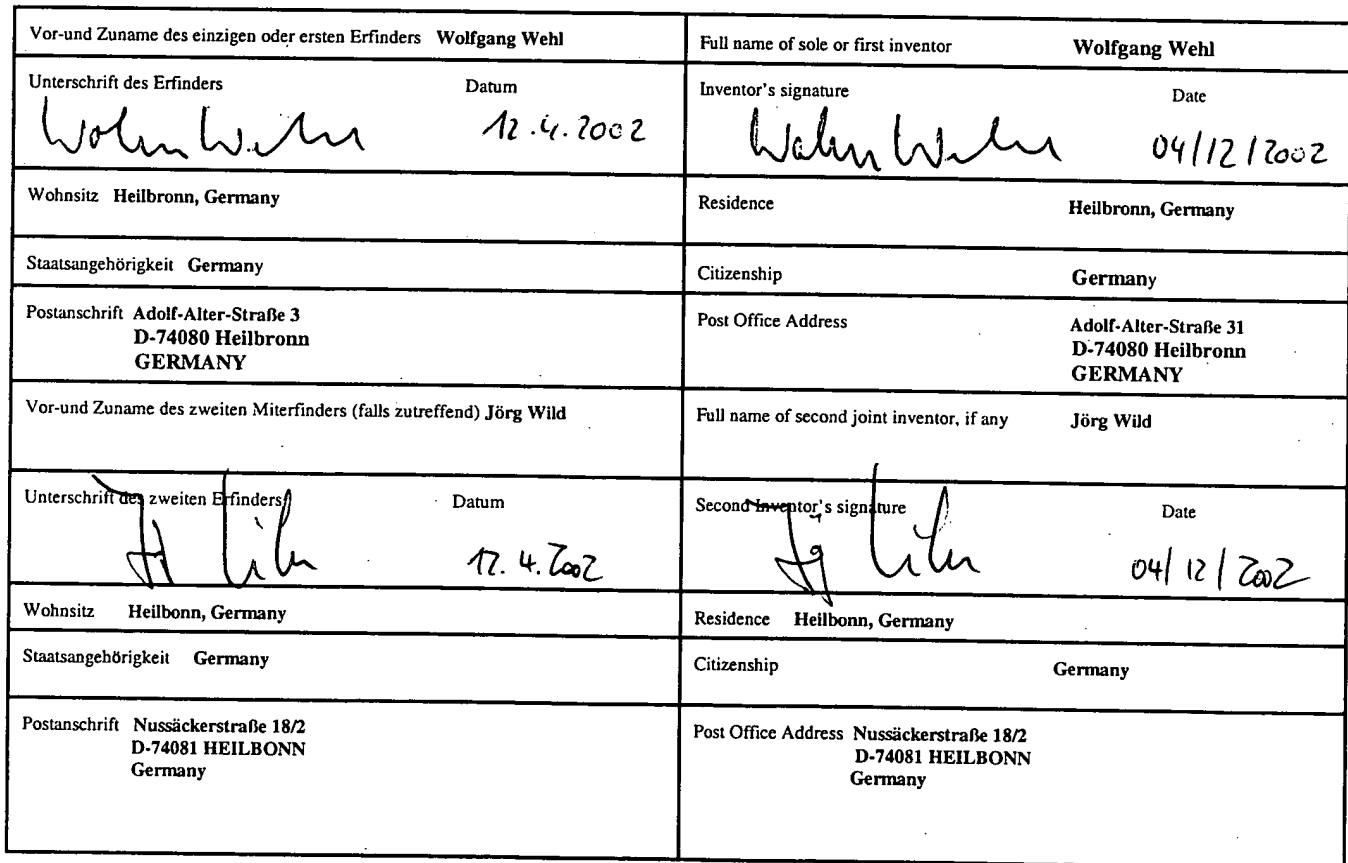 Vor-und Zuname des einzigen oder ersten Erfinders Wolfgang Wehl
Full name of sole or first inventor Wolfgang Wehl
Unterschrift des Erfinders Datum
12.4.2002
Inventor's signature Date
04/12/2002
Wohnsitz Heilbronn, Germany
Residence Heilbronn, Germany
Staatsangehörigkeit Germany
Citizenship Germany
Postanschrift Adolf-Alter-Straße 3
D-74080 Heilbronn
GERMANY
Post Office Address Adolf-Alter-Straße 31
D-74080 Heilbronn
GERMANY
Vor-und Zuname des zweiten Miterfinders (falls zutreffend) Jörg Wild
Full name of second joint inventor, if any Jörg Wild
Unterschrift des zweiten Erfinders Datum
12.4.2002
Second Inventor's signature Date
04/12/2002
Wohnsitz Heilbonn, Germany
Residence Heilbonn, Germany
Staatsangehörigkeit Germany
Citizenship Germany
Postanschrift Nussäckerstraße 18/2
D-74081 HEILBONN
Germany
Post Office Address Nussäckerstraße 18/2
D-74081 HEILBONN
Germany